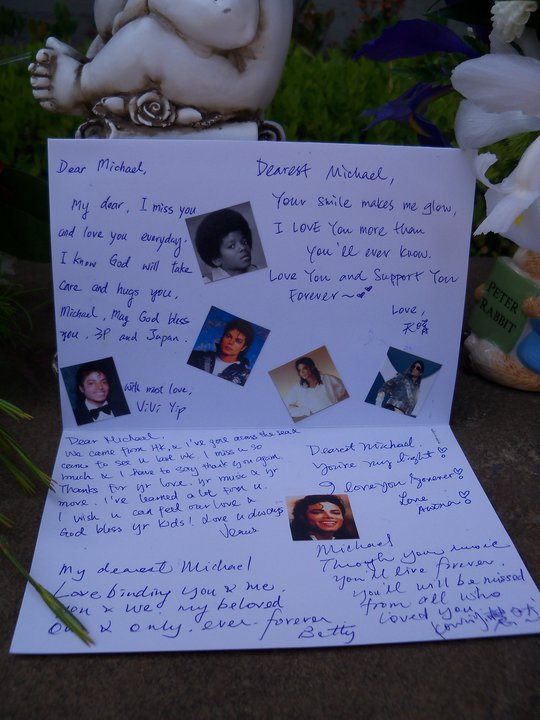 Dear Michael,
My dear, I miss you
and love you everyday.
I know God will take
care and hugs you,
Michael, May God bless
you. 3P and Japan.
with most love,
ViVi Yip
Dearest Michael,
Your smile makes me glow,
I LOVE You more than
you'll ever know.
Love You and Support You
Forever~
Love,
PETER
RABBIT
Dear Michael,
We came from HK, & I've gone across the sea &
came to see u last wk. I miss u so
much & I have to say thank you again.
Thanks for yr love, yr music & yr
move. I've learned a lot from u.
I wish u can feel our love &
God bless yr kids! Love u always
Venus
Dearest Michael,
you're my light!
I love you forever!
Love
My dearest Michael
Love binding you & me.
You & we, my beloved
One & only, ever-forever
Betty
Michael
Through your music
you'll live forever.
You'll be missed
from all who
loved you.